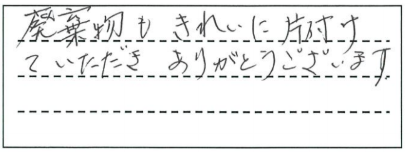 廃棄物もきれいに片付け
ていただきありがとうございます